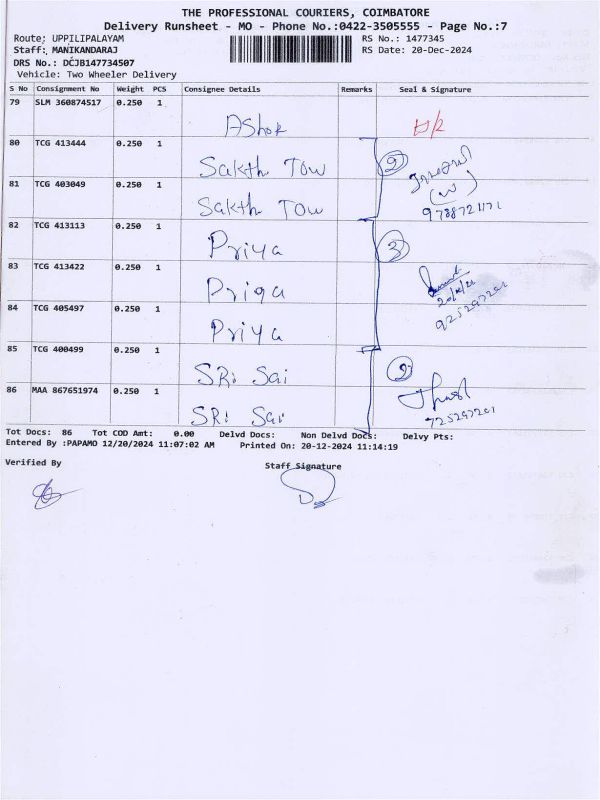 THE PROFESSIONAL COURIERS, COIMBATORE
Delivery Runsheet - MO - Phone No.:0422-3505555 - Page No.:7
Route: UPPILIPALAYAM RS No.: 1477345
Staff: MANIKANDARAJ RS Date: 20-Dec-2024
DRS No.: DCJB147734507
Vehicle: Two Wheeler Delivery
S No Consignment No Weight PCS Consignee Details Remarks Seal & Signature
79 SLM 360874517 0.250 1
Ashok
80 TCG 413444 0.250 1
Sakth Tow
81 TCG 403049 0.250 1
Sakth Tow
9788721171
82 TCG 413113 0.250 1
Priya
83 TCG 413422 0.250 1
Priya
84 TCG 405497 0.250 1
Priya
85 TCG 400499 0.250 1
SRi Sai
86 MAA 867651974 0.250 1
SRi Sai
Tot Docs: 86 Tot COD Amt: 0.00 Delvd Docs: Non Delvd Docs: Delvy Pts:
Entered By :PAPAMO 12/20/2024 11:07:02 AM Printed On: 20-12-2024 11:14:19
Verified By Staff Signature